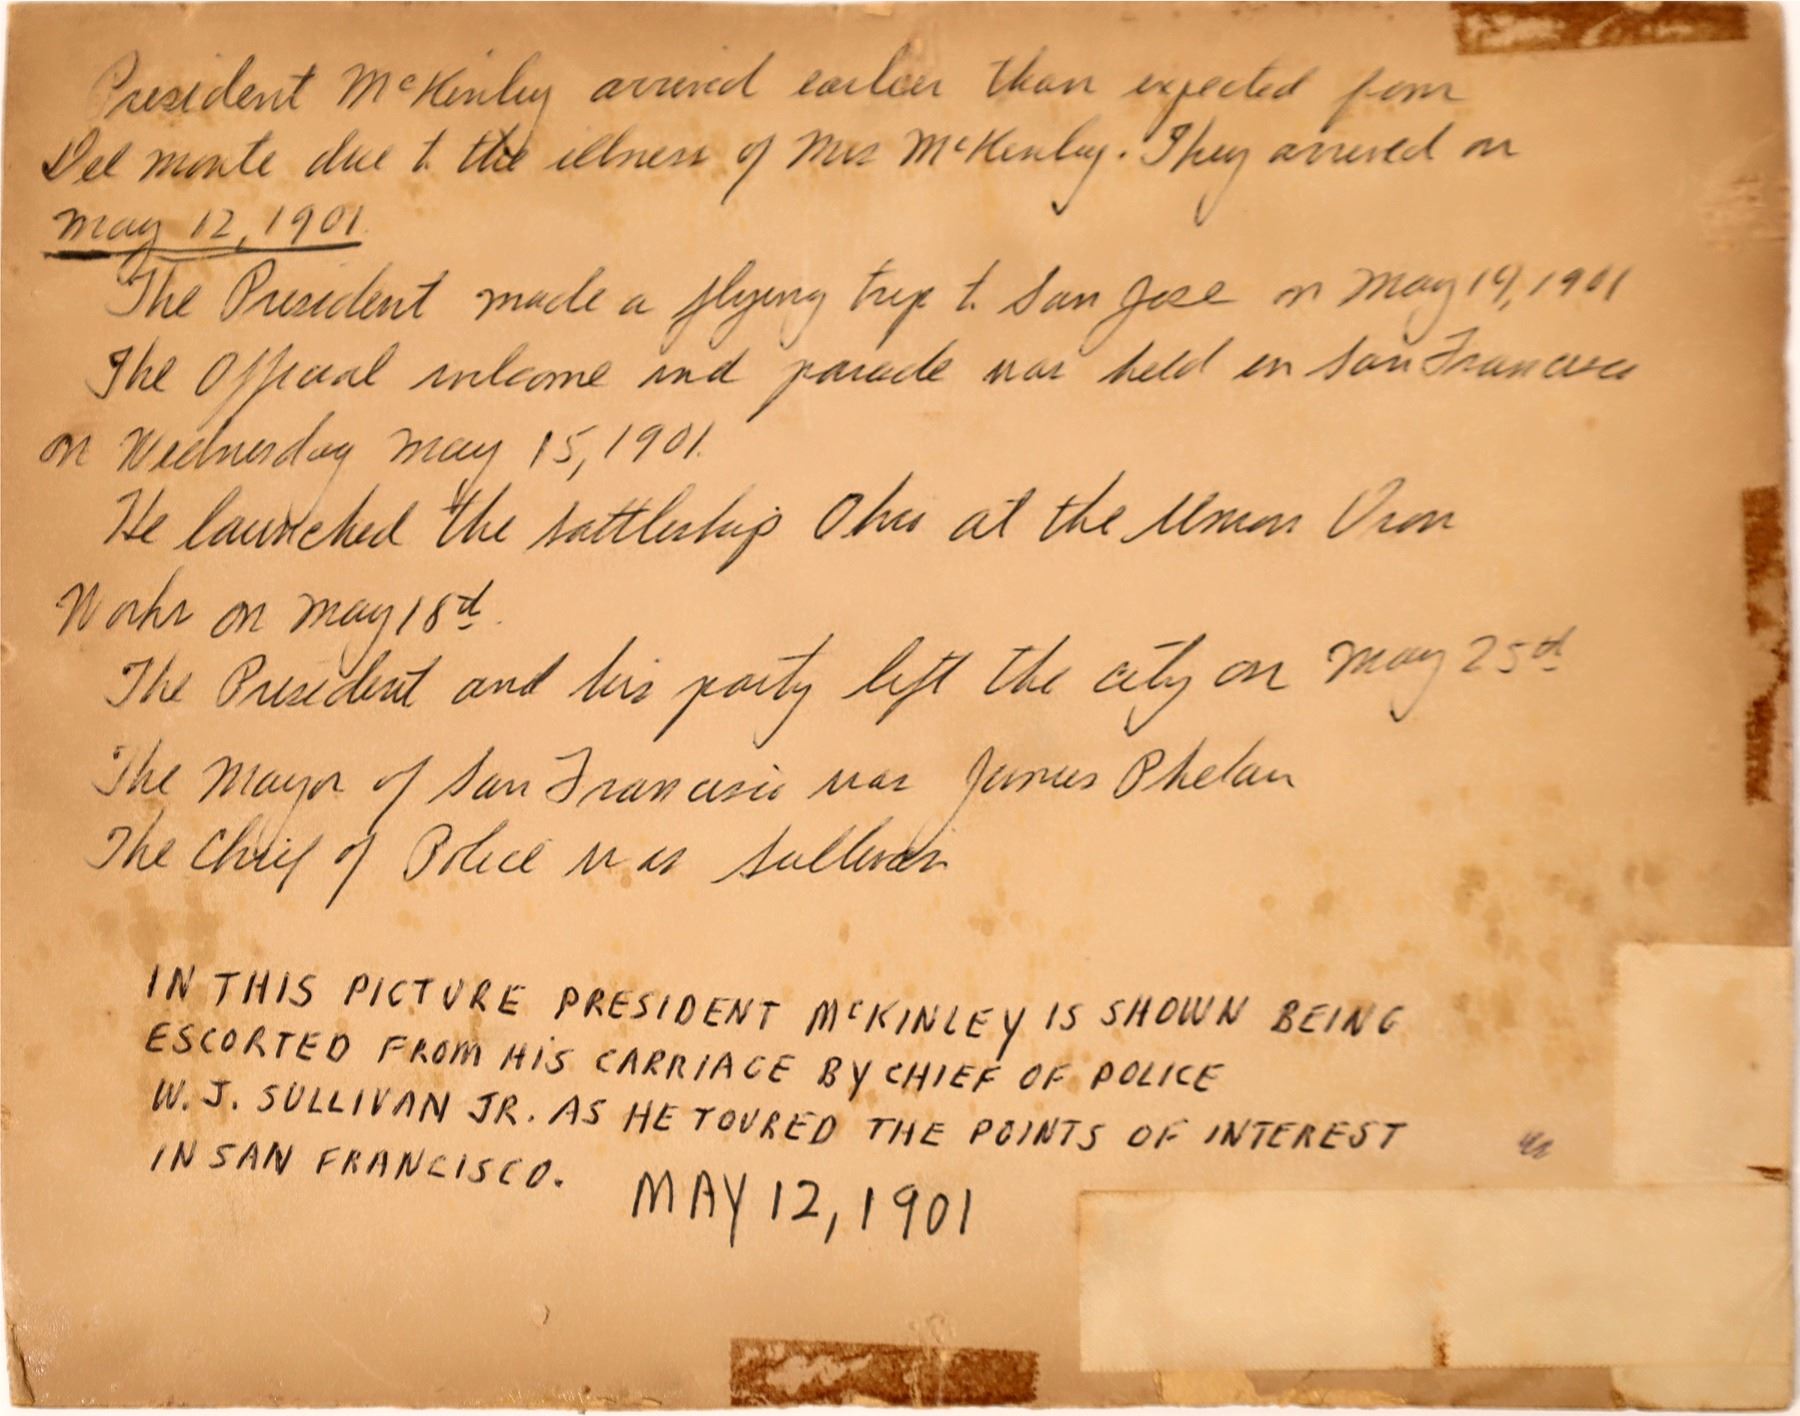 President McKinley arrived earlier than expected from
Del monte due to the illness of Mrs McKinley. They arrived on
May 12, 1901.
The President made a flying trip to San Jose on May 14, 1901
The Official welcome and parade was held in San Francisco
on Wednesday May 15, 1901.
He launched the battleship Ohio at the Union Iron
Works on May 18th.
The President and his party left the city on May 25th
The Mayor of San Francisco was James Phelan
The Chief of Police was Sullivan
IN THIS PICTURE PRESIDENT McKINLEY IS SHOWN BEING
ESCORTED FROM HIS CARRIAGE BY CHIEF OF POLICE
W. J. SULLIVAN JR. AS HE TOURED THE POINTS OF INTEREST
IN SAN FRANCISCO.
MAY 12, 1901